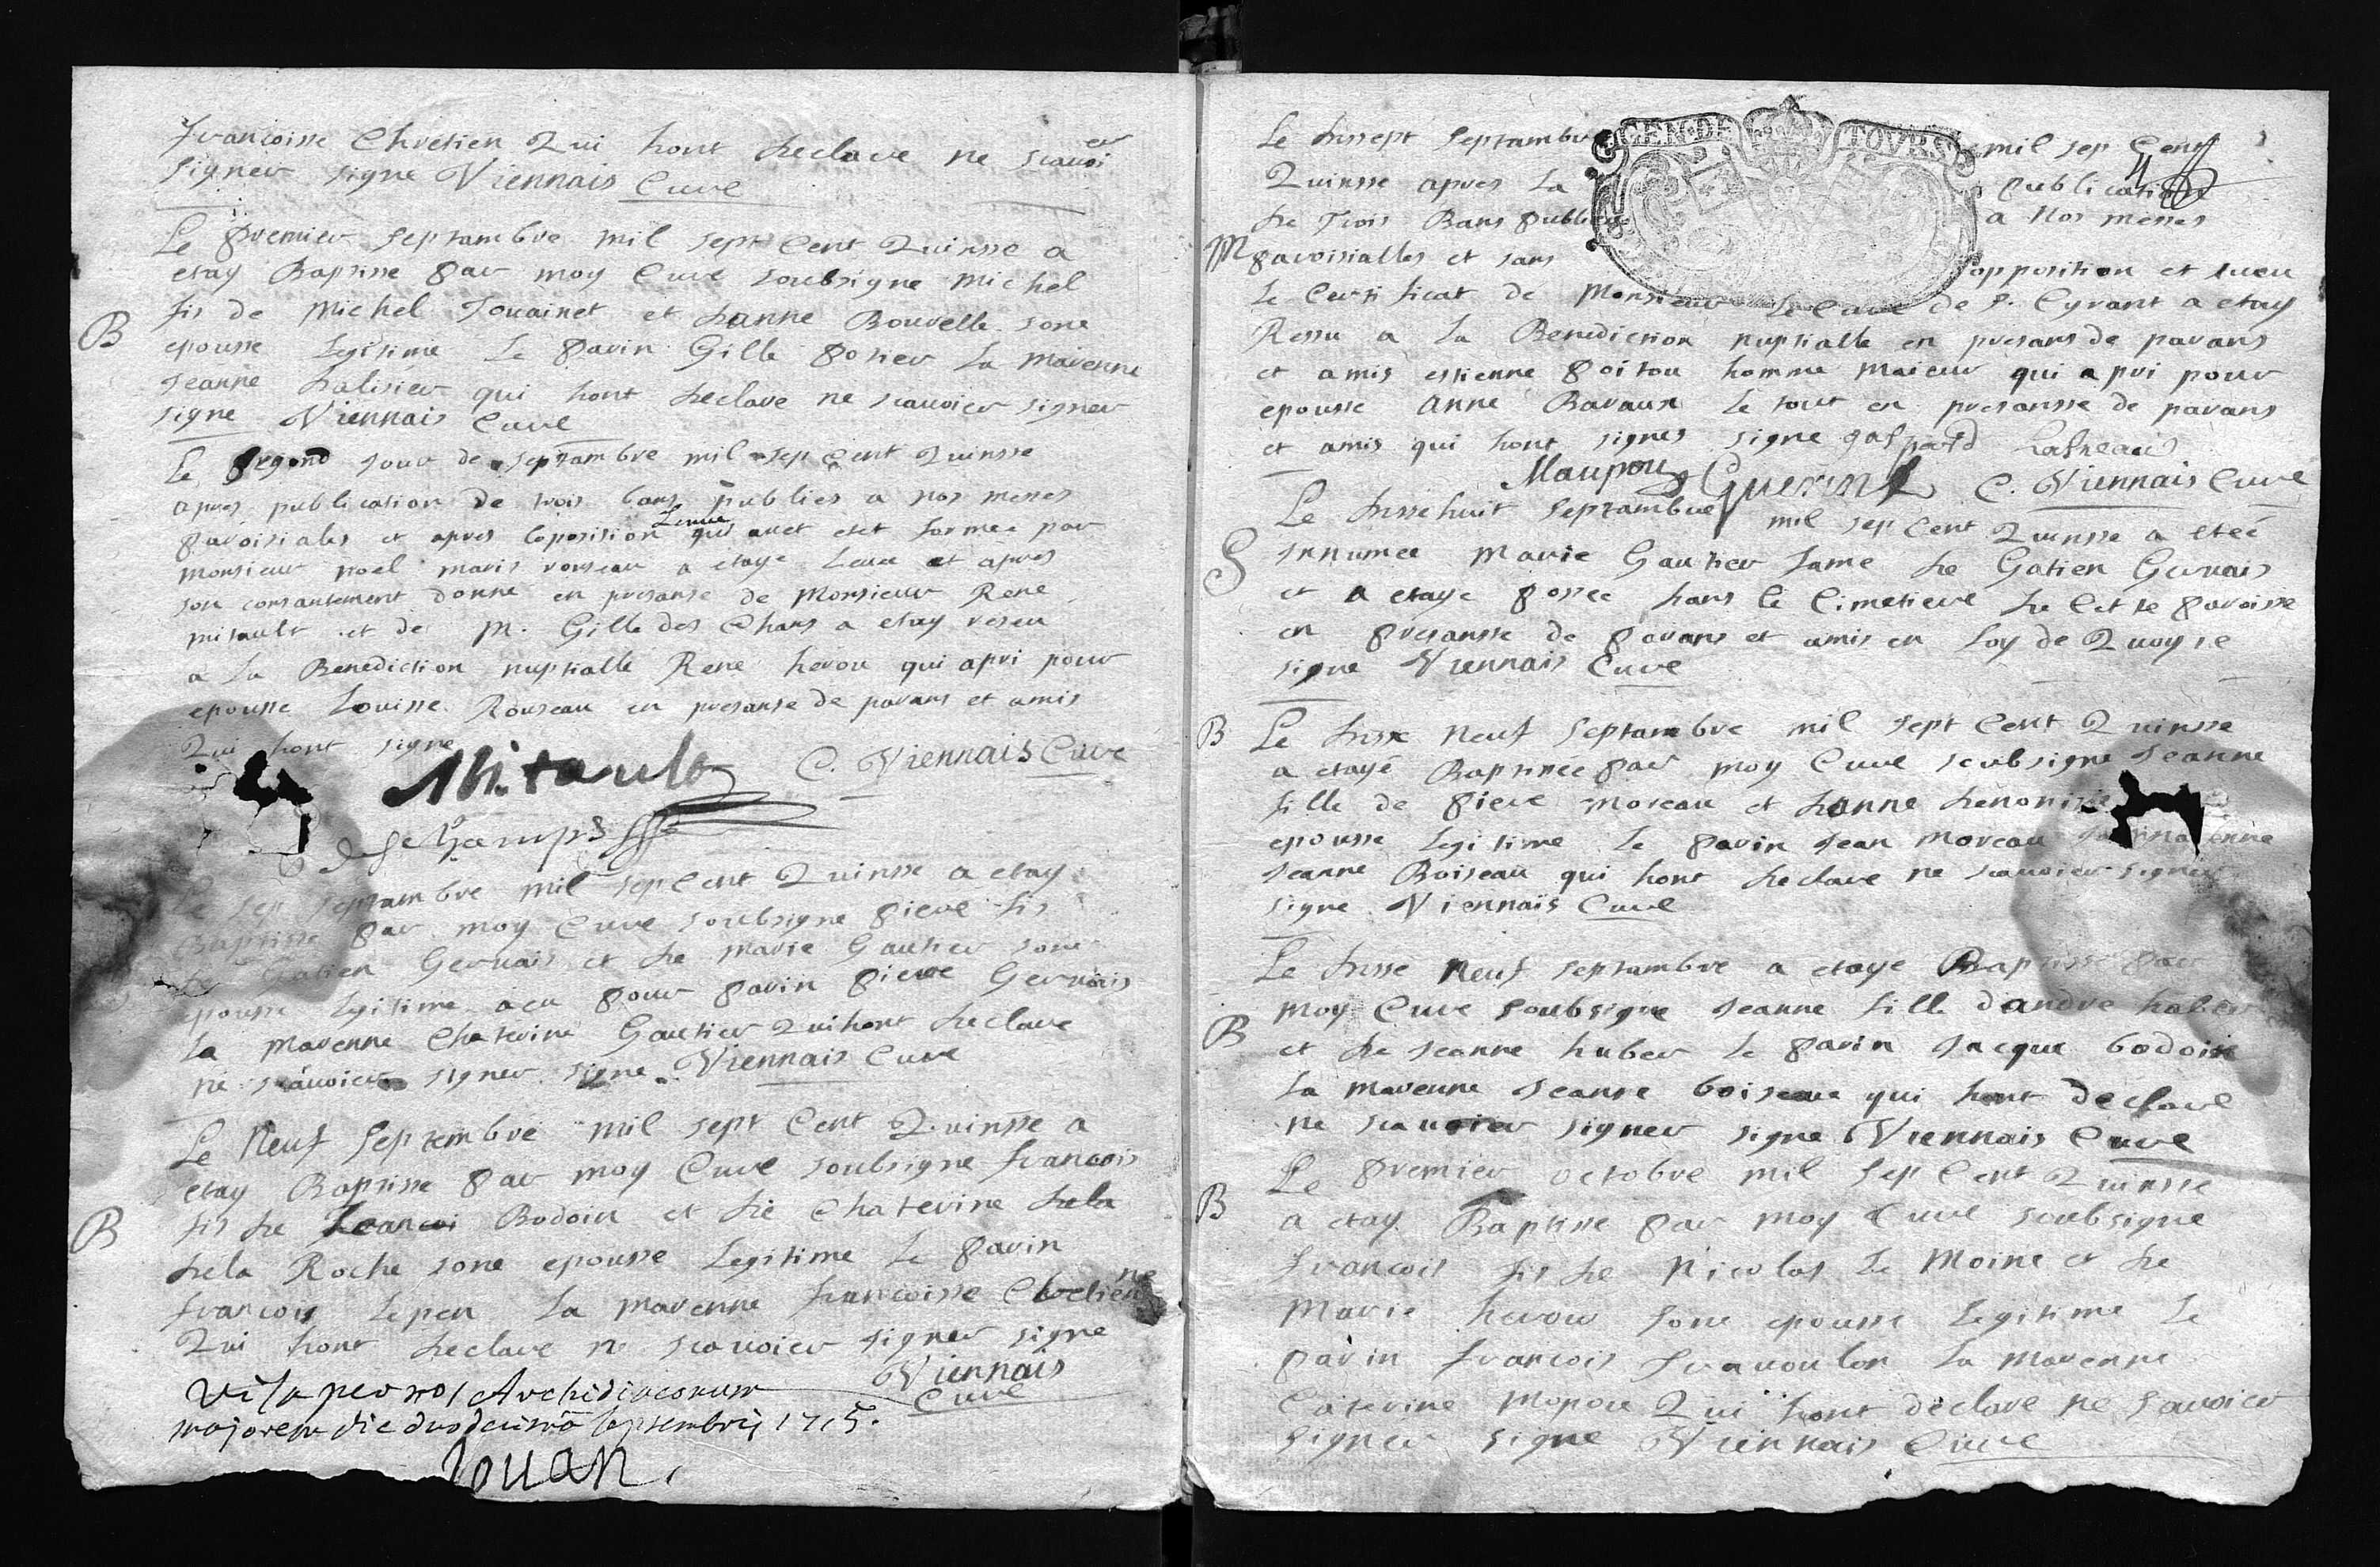 francoisse Chretien Qui hont declare ne scauoi er
signer signe Viennais Cure
Le premier septambre mil sept Cent Quinsse a
etay Baptisse par moy Cure soubsigne Michel
fis de Michel Touainet et danne Bourelle sone
B
epousse Legitime Le parin Gille potier La marenne
Jeanne halisier qui hont declare ne scauoier signer
signe Viennais Cure
Le segond jour de septambre mil sep Cent Quinsse
apres publication de trois bans publies a nos messes
paroisiales et apres loposision qui auet etet formee par
monsieur noel maris rouseau a etaye Leuee et apres
son consantement donné en presanse de Monsieur Rene
mitault et de M. Gille des Chans a etay reseu
a La Benediction nuptialle Rene herou qui a pri pour
epousse Louisse Rouseau en presanse de parans et amis
Qui hont signe
Mitault C. Viennais Cure
deschamps
Le sep septambre mil sep Cent Quinsse a etay
Baptisse par moy Cure soubsigne piere fis
de Gatien Geruais et de marie Gautier sone
epousse Legitime a eu pour parin piere Geruais
La marenne Chaterine Gautier Qui hont declare
ne scauoier signer signe Viennais Cure
Le Neuf Septembre mil sept Cent Quinsse a
etay Baptisse par moy Cure soubsigne francois
B
fis de francoi Bodoin et de Chaterine dela
dela Roche sone epousse Legitime Le parin
francois Lepen La marenne francoisse Chretienne
Qui hont declare ne scauoier signer signe
Viennais
Cure
Visa per nos Archidiaconum
majorem die duodecimâ septembris 1715.
Jouan.
GEN·DE TOVRS
Le dissept Septambre mil sep Cent
Quinsse apres La publication
de Trois Bans publies a Nos messes
M
paroisialles et sans opposition et sueu
Le Certificat de Monsieur Le Cure de S. Cyrant a etay
Ressu a La Benediction nuptialle en presans de parans
et amis estienne poitou homme maieur qui a pri pour
epousse anne Baraux Le tout en presansse de parans
et amis qui hont signes signe gaspard
Maupou Guerin C. Viennais Cure
Le dissehuit Septambre mil sep Cent Quinsse a eteé
S
innumee Marie Gautier fame de Gatien Geruais
et a etaye posee dans le Cimetiere de Cette paroisse
en presansse de parans et amis en foy de Quoy ie
signe Viennais Cure
B
Le disse neuf Septambre mil sept Cent Quinsse
a etayé Baptiséé par moy Cure soubsigne Jeanne
fille de piere moreau et danne
epousse Legitime Le parin Jean moreau La marenne
Jeanne Boiseau qui hont declare ne scauoier signer
signe Viennais Cure
Le disse Neuf septambre a etaye Baptisse par
moy Cure soubsigne Jeanne fille dandre huber
B
et de Jeanne huber Le parin Jacque bodoin
La marenne Jeanne boiseau qui hont declare
ne scauoier signer signe Viennais Cure
Le premier octobre mil Sep Cent Quinsse
B
a etay Baptisse par moy Cure soubsigne
francois fis de Nicolas Le Moine et de
Marie herou sone epousse Legitime Le
parin francois frauoulon La marenne
Caterine Mopou Qui hont declare ne sauoier
signer signe Viennais Cure